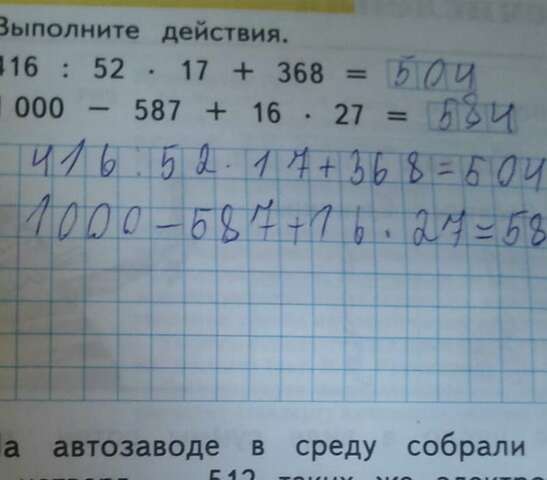 Выполните действия.
416 : 52 · 17 + 368 = 504
1 000 − 587 + 16 · 27 = 584
416 : 52 · 17 + 368 = 504
1000 − 587 + 16 · 27 = 58
На автозаводе в среду собрали
512 таких же электро